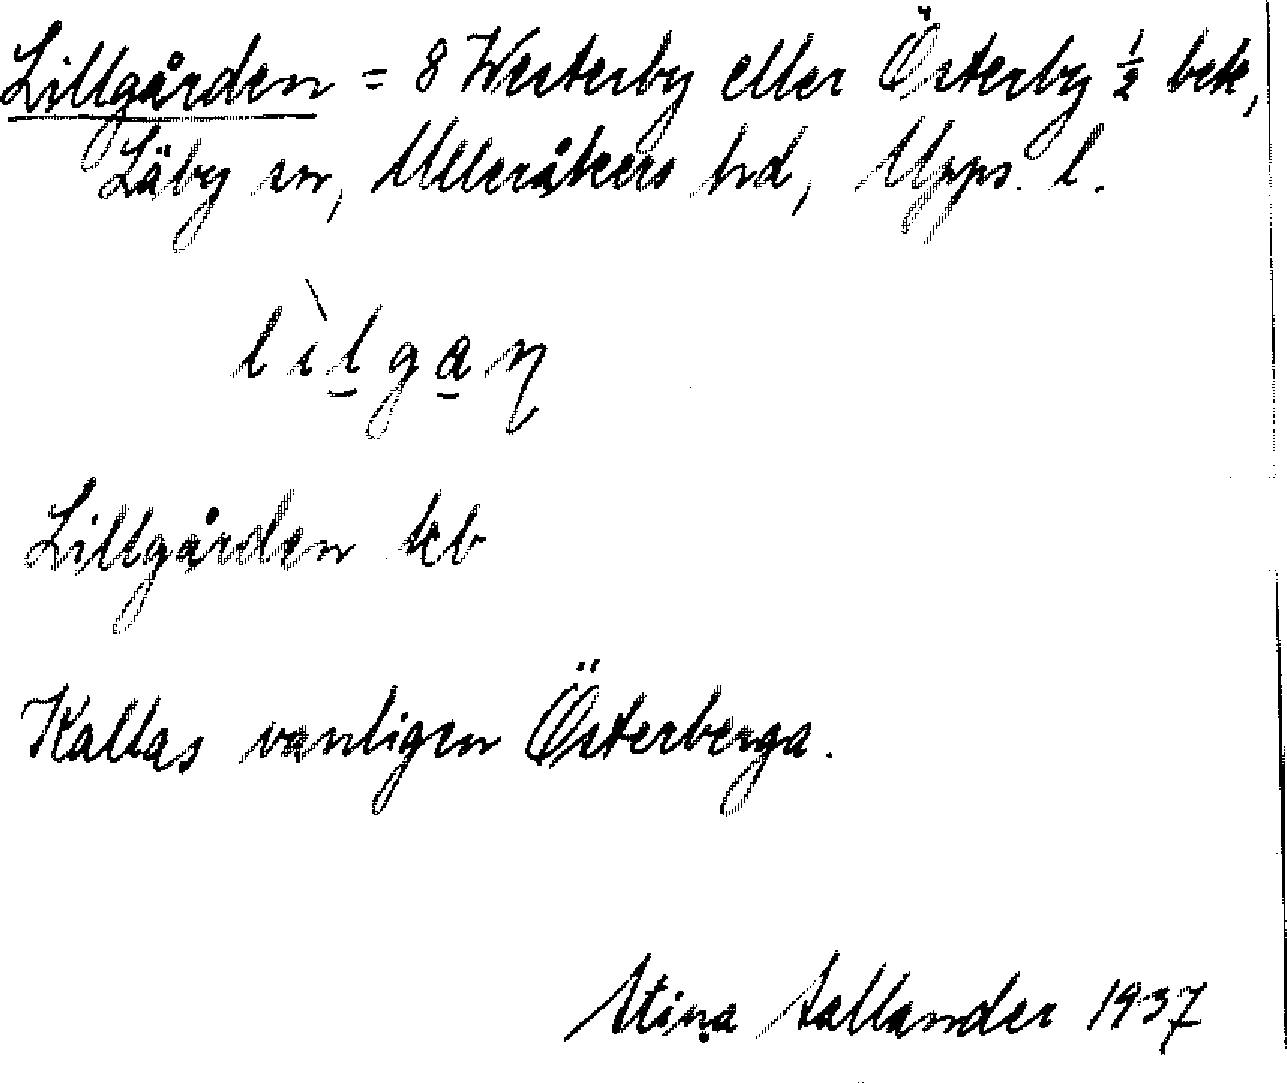 Lillgården = 8 Westerby eller Österby ½ bek,
Läby sn, Ulleråkers hd, Upps. l.
lìlgaɳ
Lillgården kb
Kallas vanligen Österberga.
Stina Sallander 1937